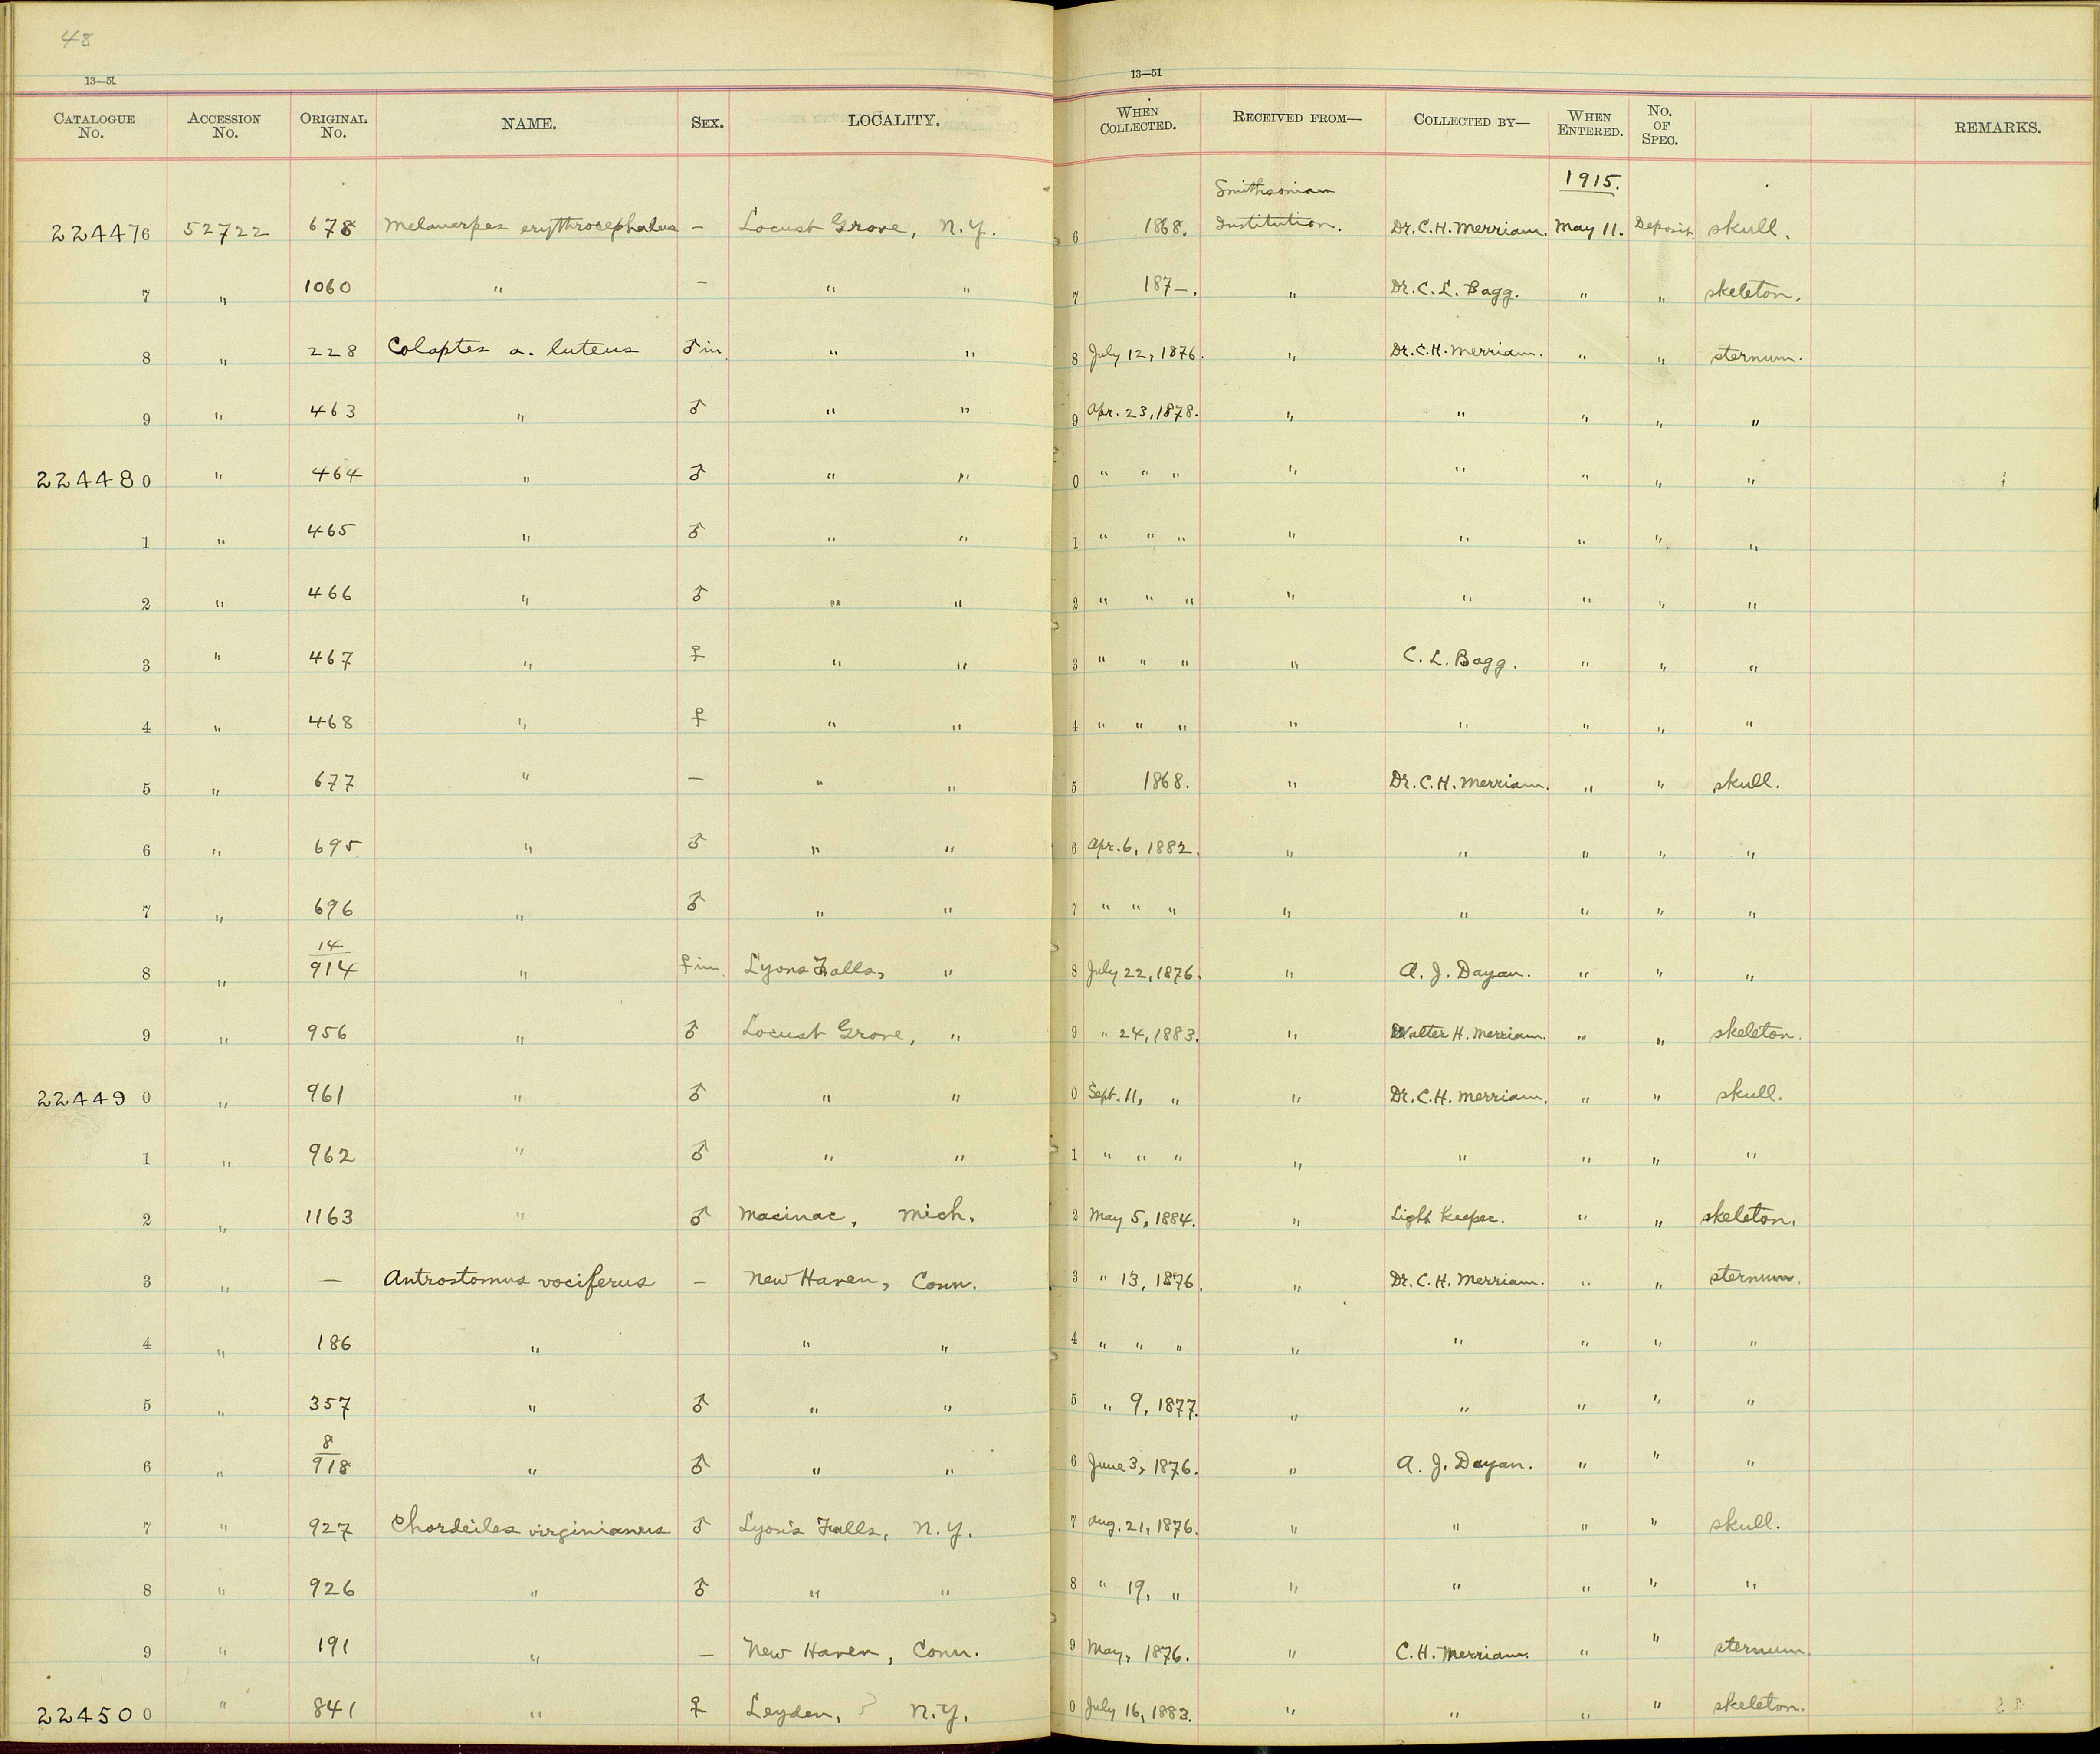 48
13—51 13—51
CATALOGUE No. ACCESSION No. ORIGINAL No. NAME. SEX. LOCALITY. WHEN COLLECTED. RECEIVED FROM— COLLECTED BY— WHEN ENTERED. No. OF SPEC. REMARKS.
Smithsonian 1915.
224476 52722 678 Melanerpes erythrocephalus – Locust Grove, N.Y. 6 1868. Institution. Dr. C.H. Merriam. May 11. Deposit. skull.
7 " 1060 " – " " 7 187–. " Dr. C. L. Bagg. " " skeleton.
8 " 228 Colaptes a. luteus ♂ im. " " 8 July 12, 1876. " Dr. C.H. Merriam. " " sternum.
9 " 463 " ♂ " " 9 Apr. 23, 1878. " " " " "
224480 " 464 " ♂ " " 0 " " " " " " " "
1 " 465 " ♂ " " 1 " " " " " " " "
2 " 466 " ♂ " " 2 " " " " " " " "
3 " 467 " ♀ " " 3 " " " " C. L. Bagg. " " "
4 " 468 " ♀ " " 4 " " " " " " " "
5 " 677 " – " " 5 1868. " Dr. C.H. Merriam. " " skull.
6 " 695 " ♂ " " 6 Apr. 6, 1882. " " " " "
7 " 696 " ♂ " " 7 " " " " " " " "
14
8 " 914 " ♀ im. Lyons Falls, " 8 July 22, 1876. " A. J. Dayan. " " "
9 " 956 " ♂ Locust Grove, " 9 " 24, 1883. " Walter H. Merriam. " " skeleton.
224490 " 961 " ♂ " " 0 Sept. 11, " " Dr. C.H. Merriam. " " skull.
1 " 962 " ♂ " " 1 " " " " " " " "
2 " 1163 " ♂ Macinac, Mich. 2 May 5, 1884. " Light Keeper. " " skeleton.
3 " – Antrostomus vociferus – New Haven, Conn. 3 " 13, 1876. " Dr. C. H. Merriam. " " sternum.
4 " 186 " " " 4 " " " " " " " "
5 " 357 " ♂ " " 5 " 9, 1877. " " " " "
8
6 " 918 " ♂ " " 6 June 3, 1876. " A. J. Dayan. " " "
7 " 927 Chordeiles virginianus ♂ Lyon's Falls, N.Y. 7 Aug. 21, 1876. " " " " skull.
8 " 926 " ♂ " " 8 " 19, " " " " " "
9 " 191 " – New Haven, Conn. 9 May, 1876. " C. H. Merriam. " " sternum.
224500 " 841 " ♀ Leyden, N.Y. 0 July 16, 1883. " " " " skeleton.